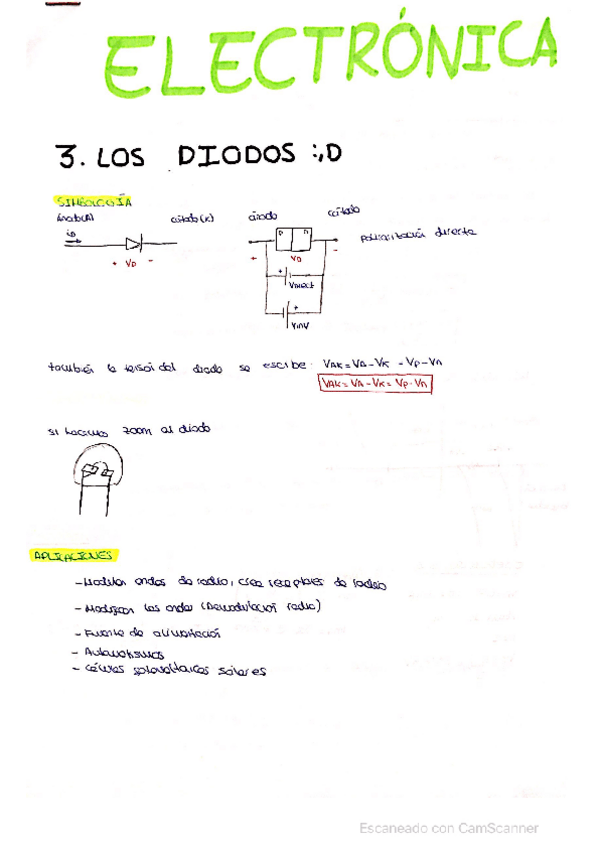 ELECTRÓNICA
3. LOS DIODOS :,D
SIMBOLOGÍA
ánodo(A) cátodo(K) ánodo cátodo
iD
P N
polarización directa
+ VD -
+ VD -
+
Vdirect
+
Vinv
también la tensión del diodo se escribe: VAK = VA - VK - VP - Vn
VAK = VA - VK = VP - Vn
si hacemos zoom al diodo
APLICACIONES
- Modular ondas de radio, crea receptores de radio
- Modifican las ondas (Demodulación radio)
- Fuente de alimentación
- Automatismos
- Células fotovoltaicas solares
Escaneado con CamScanner